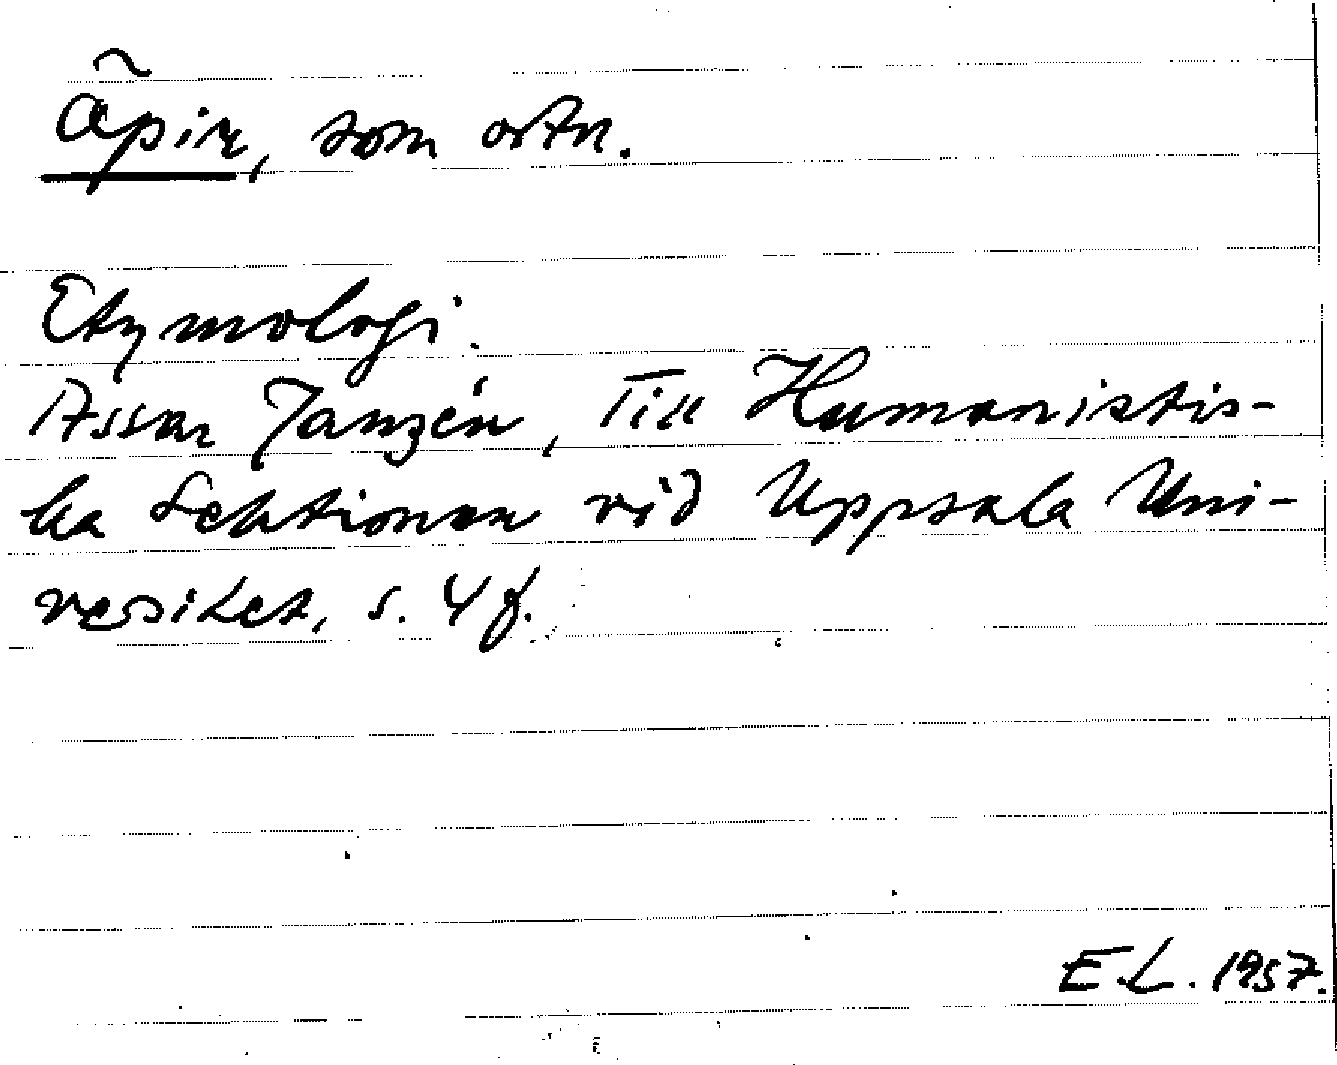 Ãpir, som ortn.
Etymologi.
Assar Janzén, Till Humanistis-
ka Sektionen vid Uppsala Uni-
versitet, s. 4 f.
E.L. 1957.